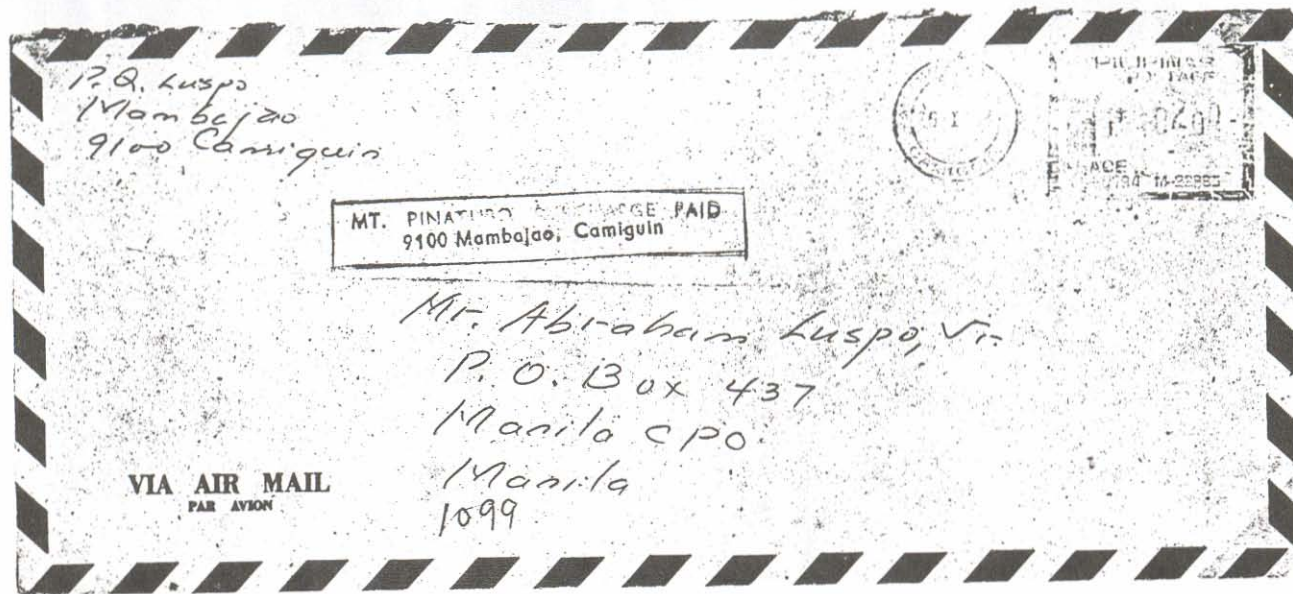 P.Q. Luspo
Mambajao
9100 Camiguin
PILIPINAS
POSTAGE
MT. PINATUBO SURCHARGE PAID
9100 Mambajao, Camiguin
Mr. Abraham Luspo, Jr.
P. O. Box 437
Manila CPO
Manila
1099
VIA AIR MAIL
PAR AVION